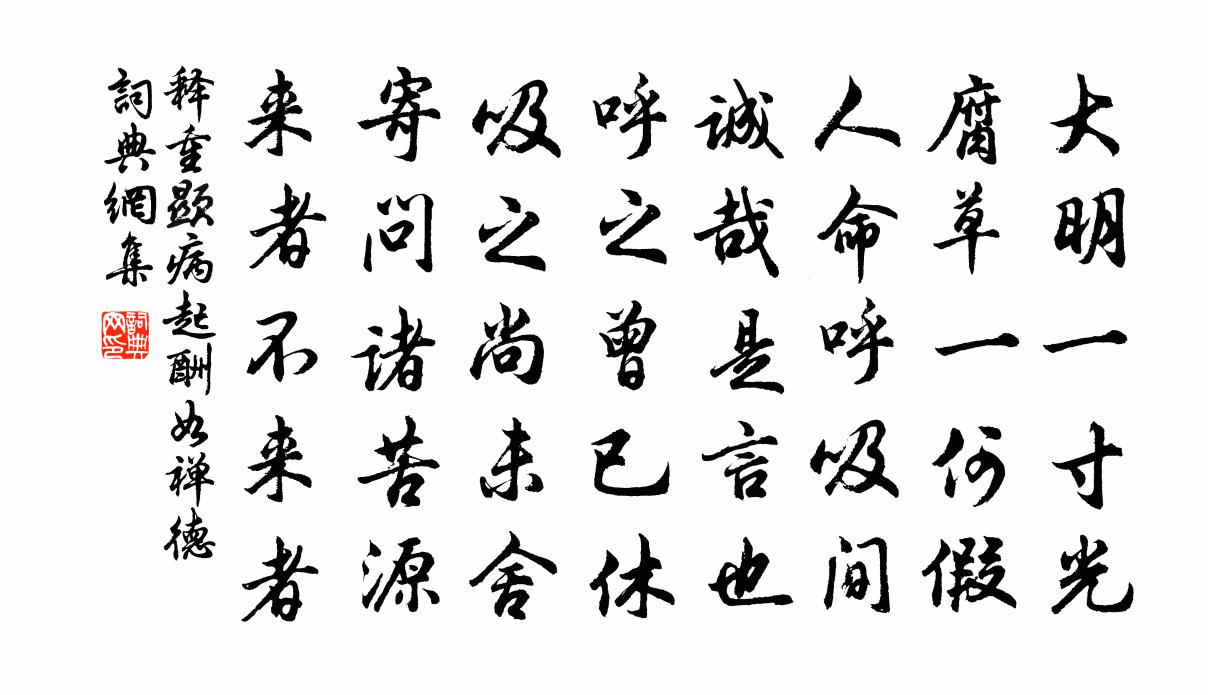 大明一寸光
腐草一何假
人命呼吸间
诚哉是言也
呼之曾已休
吸之尚未舍
寄问诸苦源
来者不来者
释重显病起酬如禅德
詞典網集
詞典网